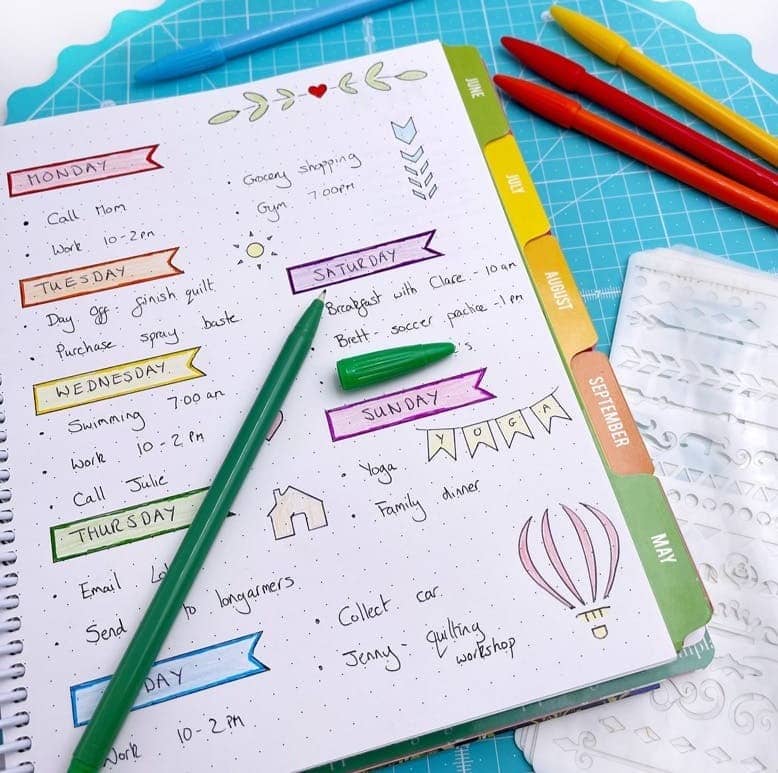 MONDAY
• Call Mom
• Work 10-2pm
TUESDAY
• Day off - finish quilt
• Purchase spray baste
WEDNESDAY
• Swimming 7:00 am
• Work 10-2 pm
• Call Julie
THURSDAY
• Email
• Send to longarmers
DAY
Work 10-2 pm
• Grocery shopping
• Gym 7:00pm
SATURDAY
Breakfast with Clare - 10 am
• Brett - soccer practice - 1 pm
SUNDAY
YOGA
• Yoga
• Family dinner
• Collect car
• Jenny - quilting
workshop
JUNE
JULY
AUGUST
SEPTEMBER
MAY